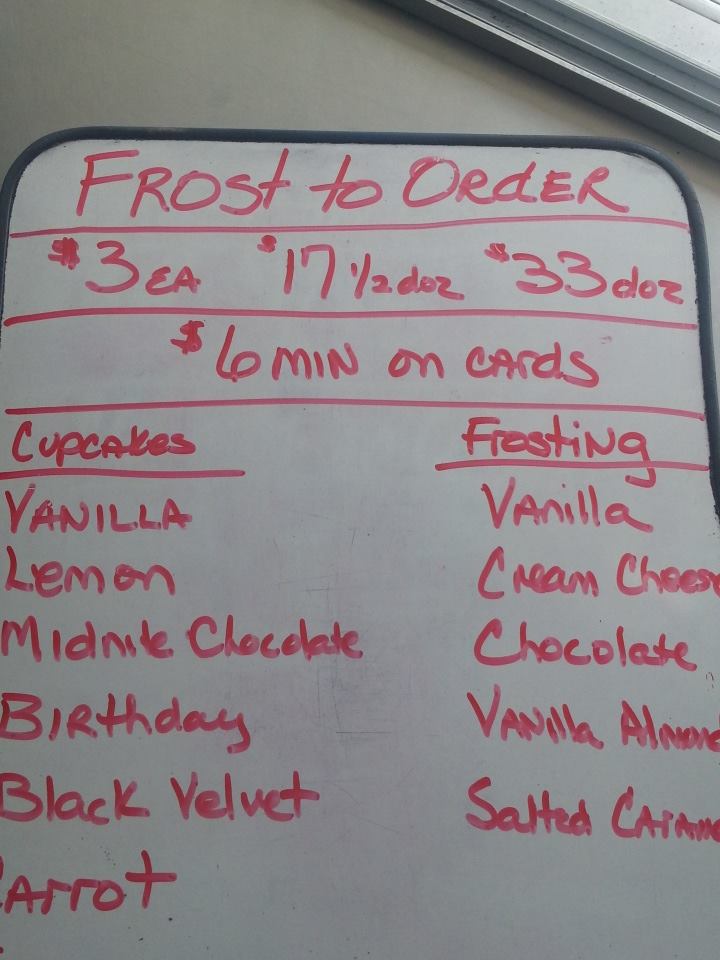 FROSt to ORdER
$3 EA $17 1/2 doz $33 doz
$6 MIN on CARds
CUPCAKes Frosting
VANILLA Vanilla
Lemon Cream Chees
Midnite Chocolate Chocolate
BIRthday VANilla Almon
Black Velvet Salted CArAm
CArrot